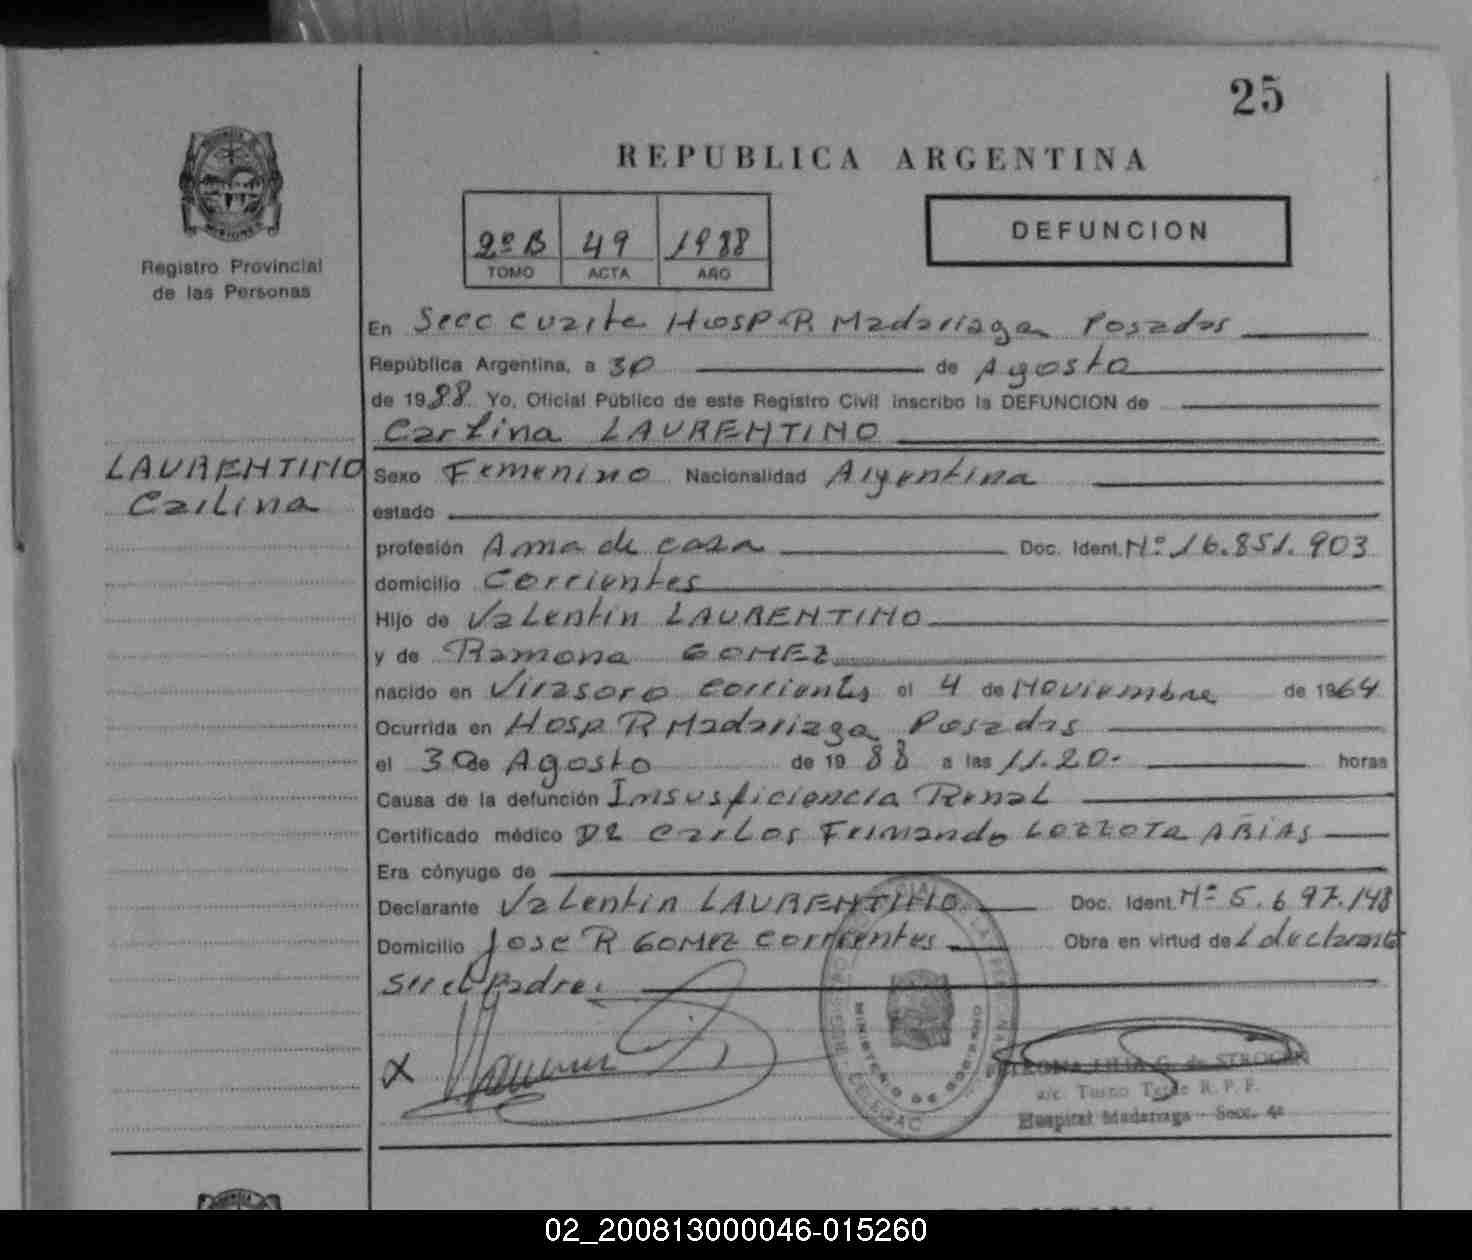 25
REPUBLICA ARGENTINA
Registro Provincial
de las Personas
2º B 49 1988
TOMO ACTA AÑO
DEFUNCION
En Secc cuarta Hosp R Madariaga Posadas
República Argentina, a 30 de Agosto
de 1988 Yo, Oficial Público de este Registro Civil inscribo la DEFUNCION de
Carlina LAURENTINO
LAURENTINO
Carlina
Sexo Femenino Nacionalidad Argentina
estado
profesión Ama de casa Doc. Ident. Nº 16.851.903
domicilio Corrientes
Hijo de Valentin LAURENTINO
y de Ramona GOMEZ
nacido en Virasoro Corrientes el 4 de Noviembre de 1964
Ocurrida en Hosp R Madariaga Posadas
el 30 de Agosto de 1988 a las 11.20.- horas
Causa de la defunción Insuficiencia Renal
Certificado médico Dr Carlos Fernando ARIAS
Era cónyuge de
Declarante Valentin LAURENTINO Doc. Ident. Nº 5.697.148
Domicilio Jose R Gomez Corrientes Obra en virtud del declarante
ser el Padre.
MINISTERIO DE GOBIERNO
LILIA G. de
a/c. Turno Tarde R. P. P.
Hospital Madariaga - Secc. 4ª
02_200813000046-015260